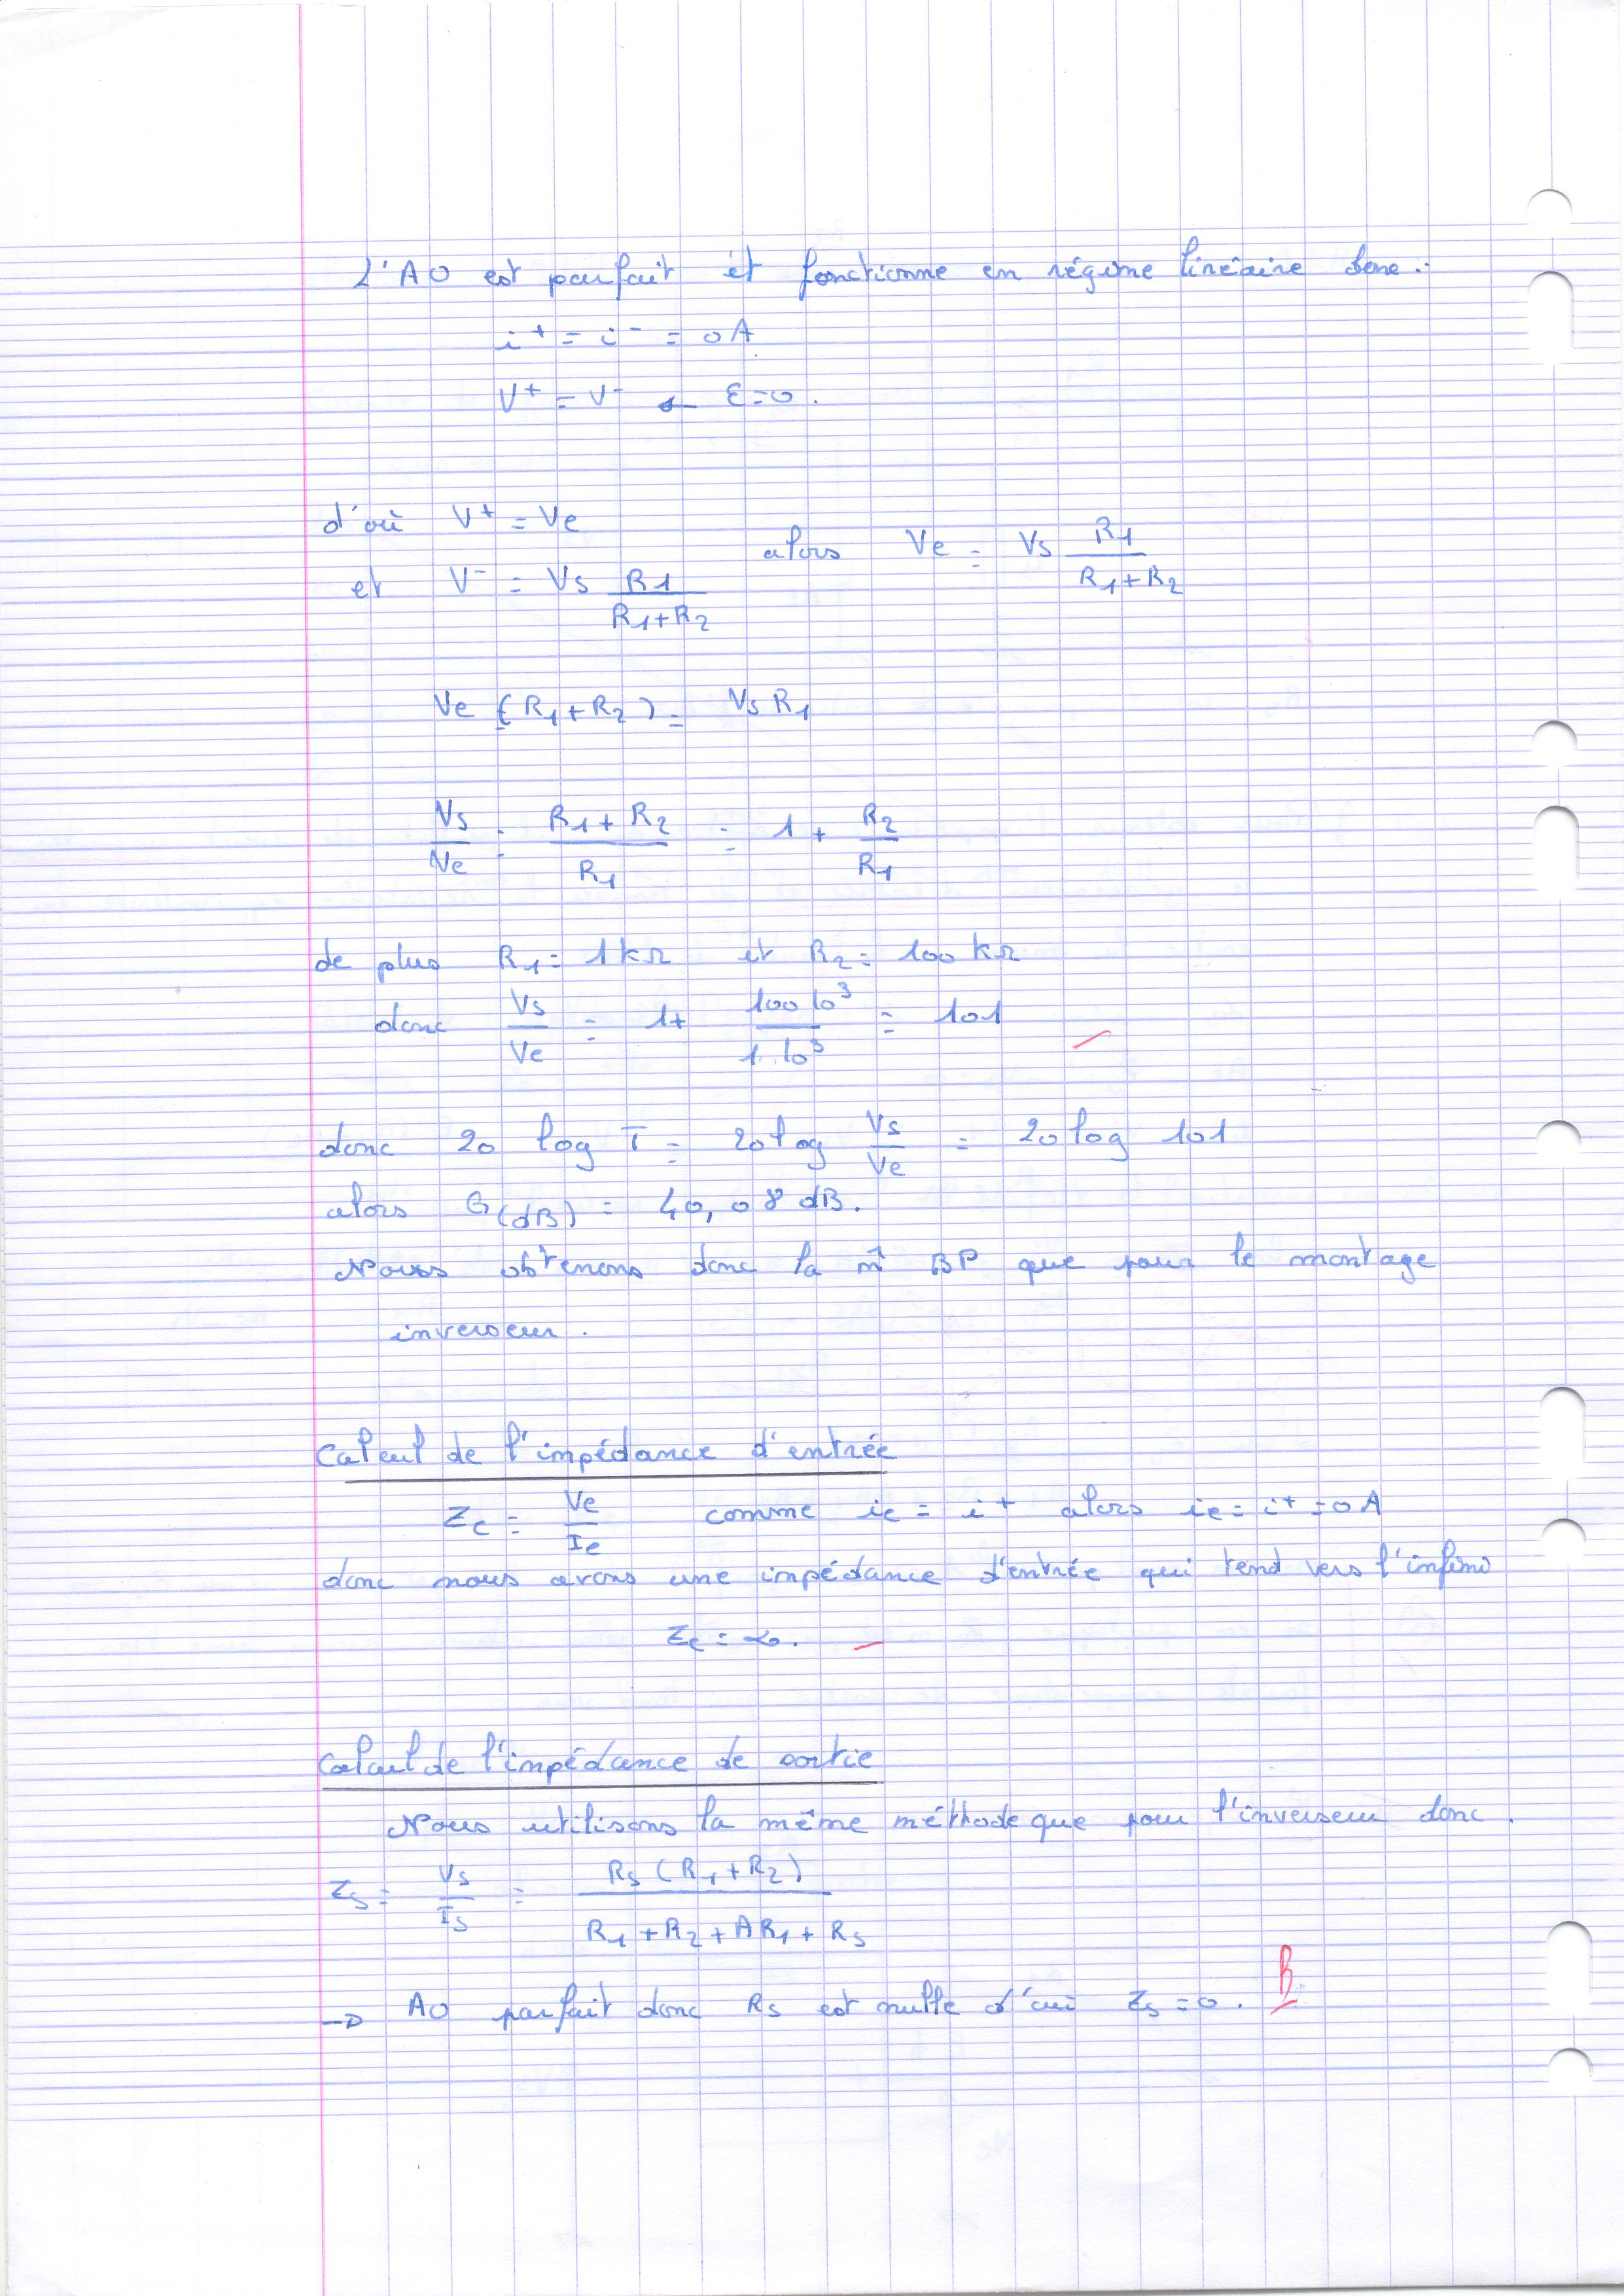 L'AO est parfait et fonctionne en régime linéaire donc :
i⁺ = i⁻ = 0A
V⁺ = V⁻ ← ε=0.
d'où V⁺ = Ve
et V⁻ = Vs R1/(R1+R2) alors Ve = Vs R1/(R1+R2)
Ve (R1+R2) = Vs R1
Vs/Ve = (R1+R2)/R1 = 1 + R2/R1
de plus R1 = 1kΩ et R2 = 100kΩ
donc Vs/Ve = 1+ 100 10³/1. 10³ = 101
donc 20 log T = 20 log Vs/Ve = 20 log 101
alors G(dB) = 40,08 dB.
Nous obtenons donc la m̂ BP que pour le montage
inverseur.
Calcul de l'impédance d'entrée
Ze = Ve/Ie comme ie = i⁺ alors ie = i⁺ = 0A
donc nous avons une impédance d'entrée qui tend vers l'infini
Ze = ∞.
Calcul de l'impédance de sortie
Nous utilisons la même méthode que pour l'inverseur donc.
Zs = Vs/Is = Rs (R1+R2)/(R1+R2+AR1+Rs)
→ AO parfait donc Rs est nulle d'où Zs = 0. B